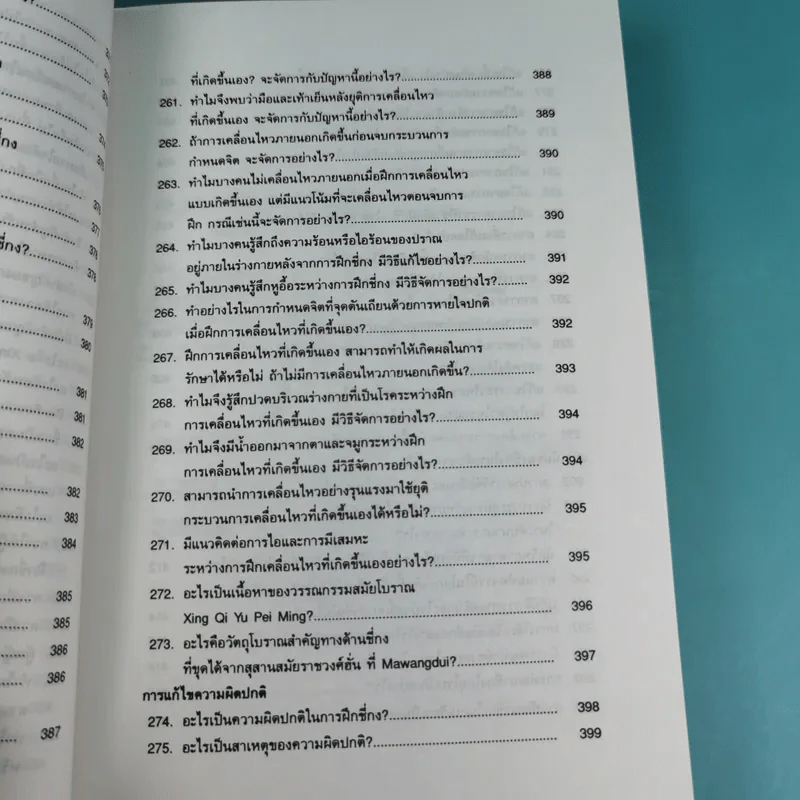 ที่เกิดขึ้นเอง? จะจัดการกับปัญหานี้อย่างไร?.................................... 388
261. ทำไมจึงพบว่ามือและเท้าเย็นหลังยุติการเคลื่อนไหว
ที่เกิดขึ้นเอง จะจัดการกับปัญหานี้อย่างไร?...................................... 389
262. ถ้าการเคลื่อนไหวภายนอกเกิดขึ้นก่อนจบกระบวนการ
กำหนดจิต จะจัดการอย่างไร?...................................................... 390
263. ทำไมบางคนไม่เคลื่อนไหวภายนอกเมื่อฝึกการเคลื่อนไหว
แบบเกิดขึ้นเอง แต่มีแนวโน้มที่จะเคลื่อนไหวตอนจบการ
ฝึก กรณีเช่นนี้จะจัดการอย่างไร?................................................. 390
264. ทำไมบางคนรู้สึกถึงความร้อนหรือไอร้อนของปราณ
อยู่ภายในร่างกายหลังจากการฝึกชี่กง มีวิธีแก้ไขอย่างไร?................. 391
265. ทำไมบางคนรู้สึกหูอื้อระหว่างการฝึกชี่กง มีวิธีจัดการอย่างไร?......... 392
266. ทำอย่างไรในการกำหนดจิตที่จุดตันเถียนด้วยการหายใจปกติ
เมื่อฝึกการเคลื่อนไหวที่เกิดขึ้นเอง?.............................................. 392
267. ฝึกการเคลื่อนไหวที่เกิดขึ้นเอง สามารถทำให้เกิดผลในการ
รักษาได้หรือไม่ ถ้าไม่มีการเคลื่อนไหวภายนอกเกิดขึ้น?................... 393
268. ทำไมจึงรู้สึกปวดบริเวณร่างกายที่เป็นโรคระหว่างฝึก
การเคลื่อนไหวที่เกิดขึ้นเอง มีวิธีจัดการอย่างไร?............................. 394
269. ทำไมจึงมีน้ำออกมาจากตาและจมูกระหว่างฝึก
การเคลื่อนไหวที่เกิดขึ้นเอง มีวิธีจัดการอย่างไร?............................. 394
270. สามารถนำการเคลื่อนไหวอย่างรุนแรงมาใช้ยุติ
กระบวนการเคลื่อนไหวที่เกิดขึ้นเองได้หรือไม่?................................ 395
271. มีแนวคิดต่อการไอและการมีเสมหะ
ระหว่างการฝึกเคลื่อนไหวที่เกิดขึ้นเองอย่างไร?............................... 395
272. อะไรเป็นเนื้อหาของวรรณกรรมสมัยโบราณ
Xing Qi Yu Pei Ming?............................................................... 396
273. อะไรคือวัตถุโบราณสำคัญทางด้านชี่กง
ที่ขุดได้จากสุสานสมัยราชวงศ์ฮั่น ที่ Mawangdui?........................... 397
การแก้ไขความผิดปกติ
274. อะไรเป็นความผิดปกติในการฝึกชี่กง?........................................... 398
275. อะไรเป็นสาเหตุของความผิดปกติ?................................................ 399
376
376
378
379
380
381
381
382
382
383
384
385
385
386
386
387